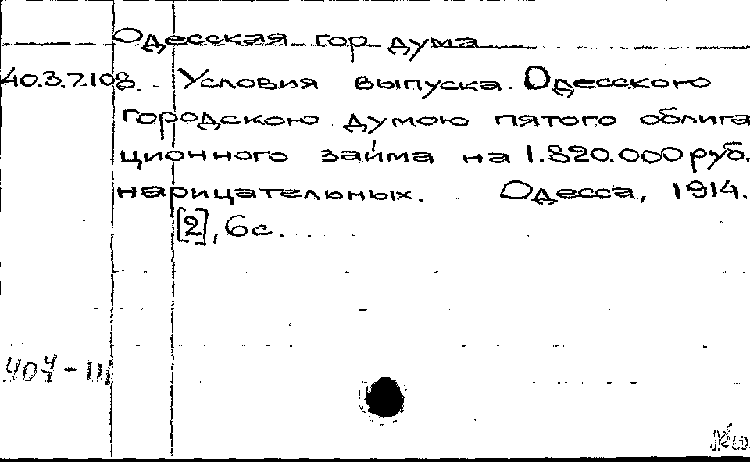 Одесская гор дума
40.3.7.108. Условия выпуска Одесскою
городскою думою пятого облига
ционного займа на 1.820.000 руб.
нарицательных. Одесса, 1914.
[2], 6с.
404-III